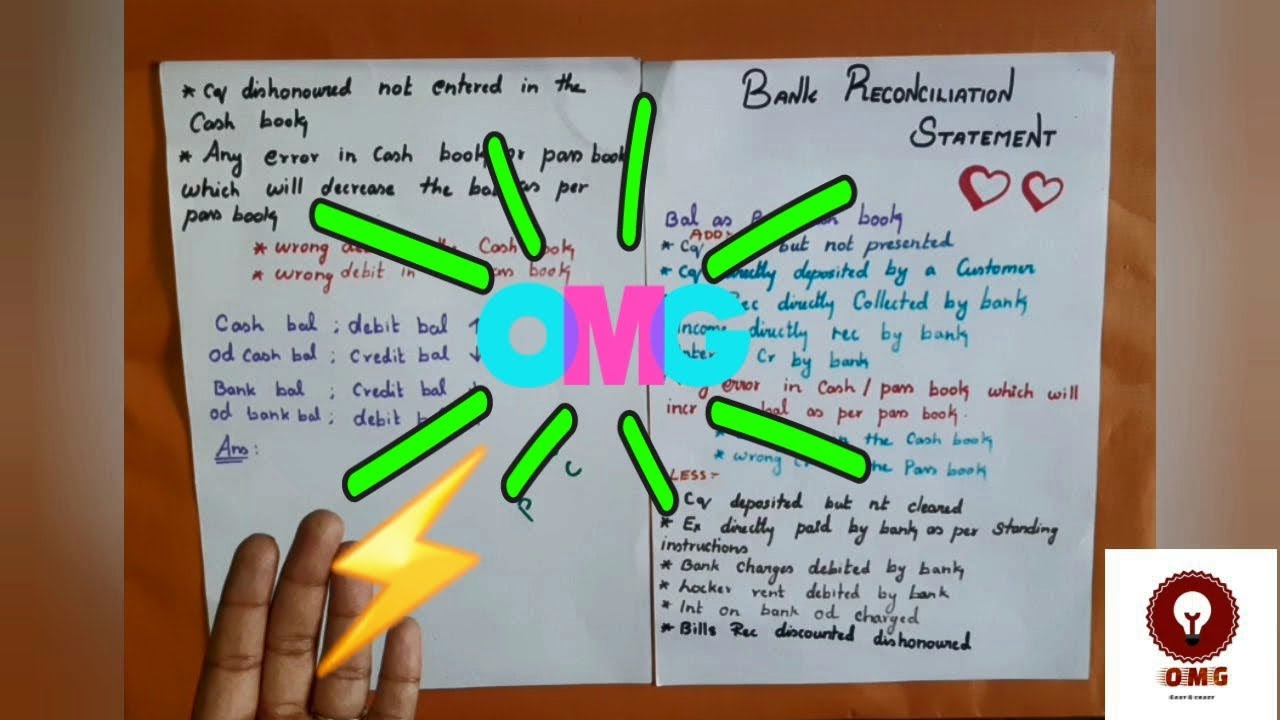 * Cq dishonoured not entered in the
Cash book
* Any error in Cash book or pass book
which will decrease the bal as per
pass book
* wrong Cash book
* wrong debit in pass book
Cash bal ; debit bal ↑
od Cash bal ; Credit bal ↓
Bank bal ; Credit bal
od bank bal ; debit
Ans :
P C
OMG
BANK RECONCILIATION
STATEMENT
Bal as book
ADD:-
* Cq but not presented
* Cq directly deposited by a Customer
Rec directly Collected by bank
income directly rec by bank
Cr by bank
error in Cash / pass book which will
incr bal as per pass book.
* the Cash book
* wrong the Pass book
LESS:-
Cq deposited but nt cleared
* Ex directly paid by bank as per Standing
instructions
* Bank charges debited by bank
* Locker rent debited by bank
* Int on bank od charged
* Bills Rec discounted dishonoured
OMG